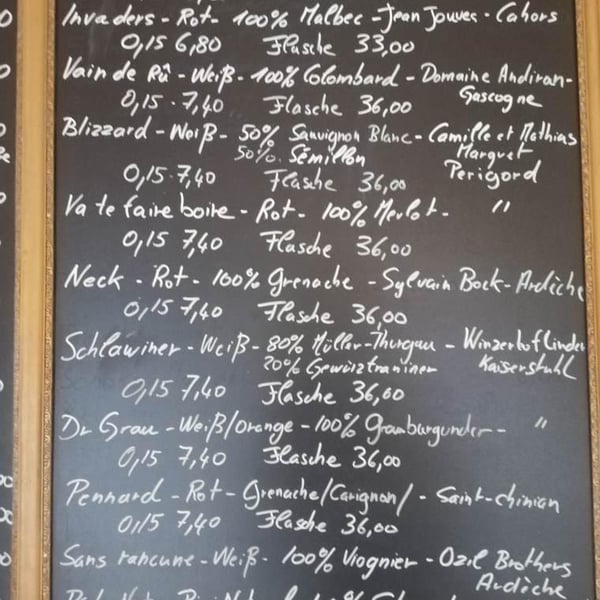 Invaders - Rot - 100% Malbec - Jean Jouves - Cahors
0,15 6,80 Flasche 33,00
Vain de Rû - Weiß - 100% Colombard - Domaine Andiran-
Gascogne
0,15 7,40 Flasche 36,00
Blizzard - Weiß - 50% Sauvignon Blanc - Camille et Mathias
50% Sémillon Marquet
Perigord
0,15 7,40 Flasche 36,00
Va te faire boire - Rot - 100% Merlot - "
0,15 7,40 Flasche 36,00
Neck - Rot - 100% Grenache - Sylvain Bock - Ardèche
0,15 7,40 Flasche 36,00
Schlawiner - Weiß - 80% Müller-Thurgau - Winzerhof Linder
20% Gewürztraminer Kaiserstuhl
0,15 7,40 Flasche 36,00
Dr Grau - Weiß/Orange - 100% Grauburgunder - "
0,15 7,40 Flasche 36,00
Pennard - Rot - Grenache/Carignan/ - Saint-chinian
0,15 7,40 Flasche 36,00
Sans rancune - Weiß - 100% Viognier - Ozil Brothers
Ardèche